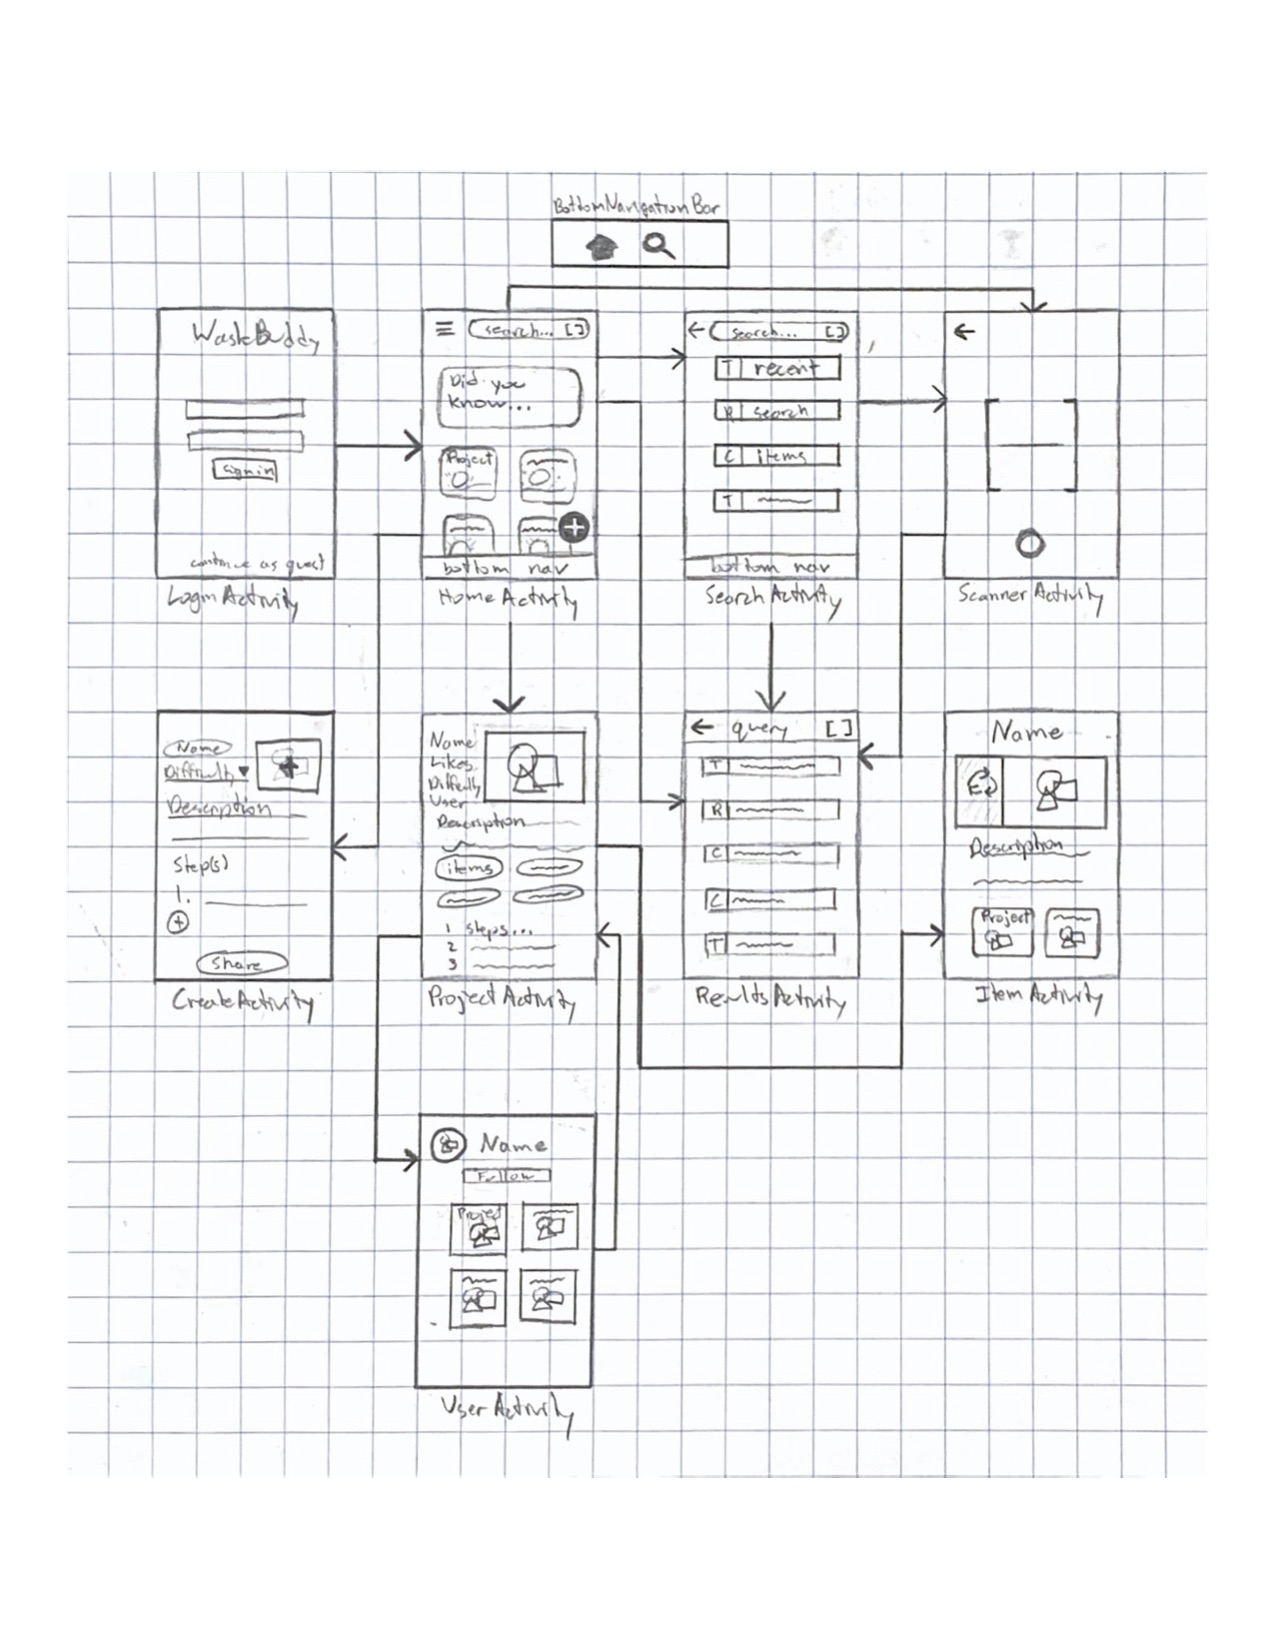 BottomNavigationBar
WasteBuddy
sign in
continue as guest
LoginActivity
search... [ ]
Did you
know...
Project
+
bottom nav
HomeActivity
search... [ ]
T recent
R search
C items
T
bottom nav
SearchActivity
ScannerActivity
Name
Difficulty
Description
Step(s)
1.
+
Share
CreateActivity
Name
Likes
Difficulty
User
Description
items
1 steps...
2
3
ProjectActivity
query [ ]
T
R
C
C
T
ResultsActivity
Name
Description
Project
ItemActivity
Name
Follow
Project
UserActivity